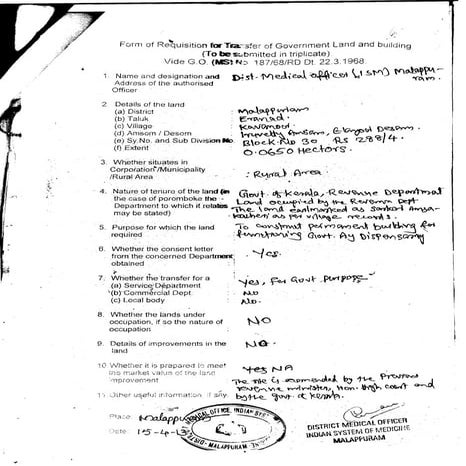 Form of Requisition for Transfer of Government Land and building
(To be submitted in triplicate)
Vide G.O. (MS) No 187/68/RD Dt. 22.3.1968.
1. Name and designation and Dist. Medical officer (ISM) Malappu-
Address of the authorised ram.
Officer
2. Details of the land
(a) District : Malappuram
(b) Taluk : Eranad
(c) Village :
(d) Amsom / Desom : Amsom, Desom.
(e) Sy.No. and Sub Division No. Block No 30 RS 288/4
(f) Extent 0.0650 Hectors.
3. Whether situates in
Corporation/Municipality : Rural Area
/Rural Area
4. Nature of tenure of the land (in Govt. of Kerala, Revenue Department
the case of poromboke the Land occupied by the Revenue Dept.
Department to which it relates The land as
may be stated) as per village records.
5. Purpose for which the land To construct permanent building for
required Govt. Ay Dispensary
6. Whether the consent letter
from the concerned Department : Yes.
obtained
7. Whether the transfer for a
(a) Service Department : Yes, For Govt. purpose
(b) Commercial Dept. : No
(c) Local body : No.
8. Whether the lands under
occupation, if so the nature of NO
occupation
9. Details of improvements in the : NO.
land
10. Whether it is prepared to meet
the market value of the land Yes NA
improvement The by the Previous
revenue minister, Hon. high court and
11. Other useful information if any by the govt of Kerala.
Place: Malappuram
Date:
DISTRICT MEDICAL OFFICER
INDIAN SYSTEM OF MEDICINE
MALAPPURAM